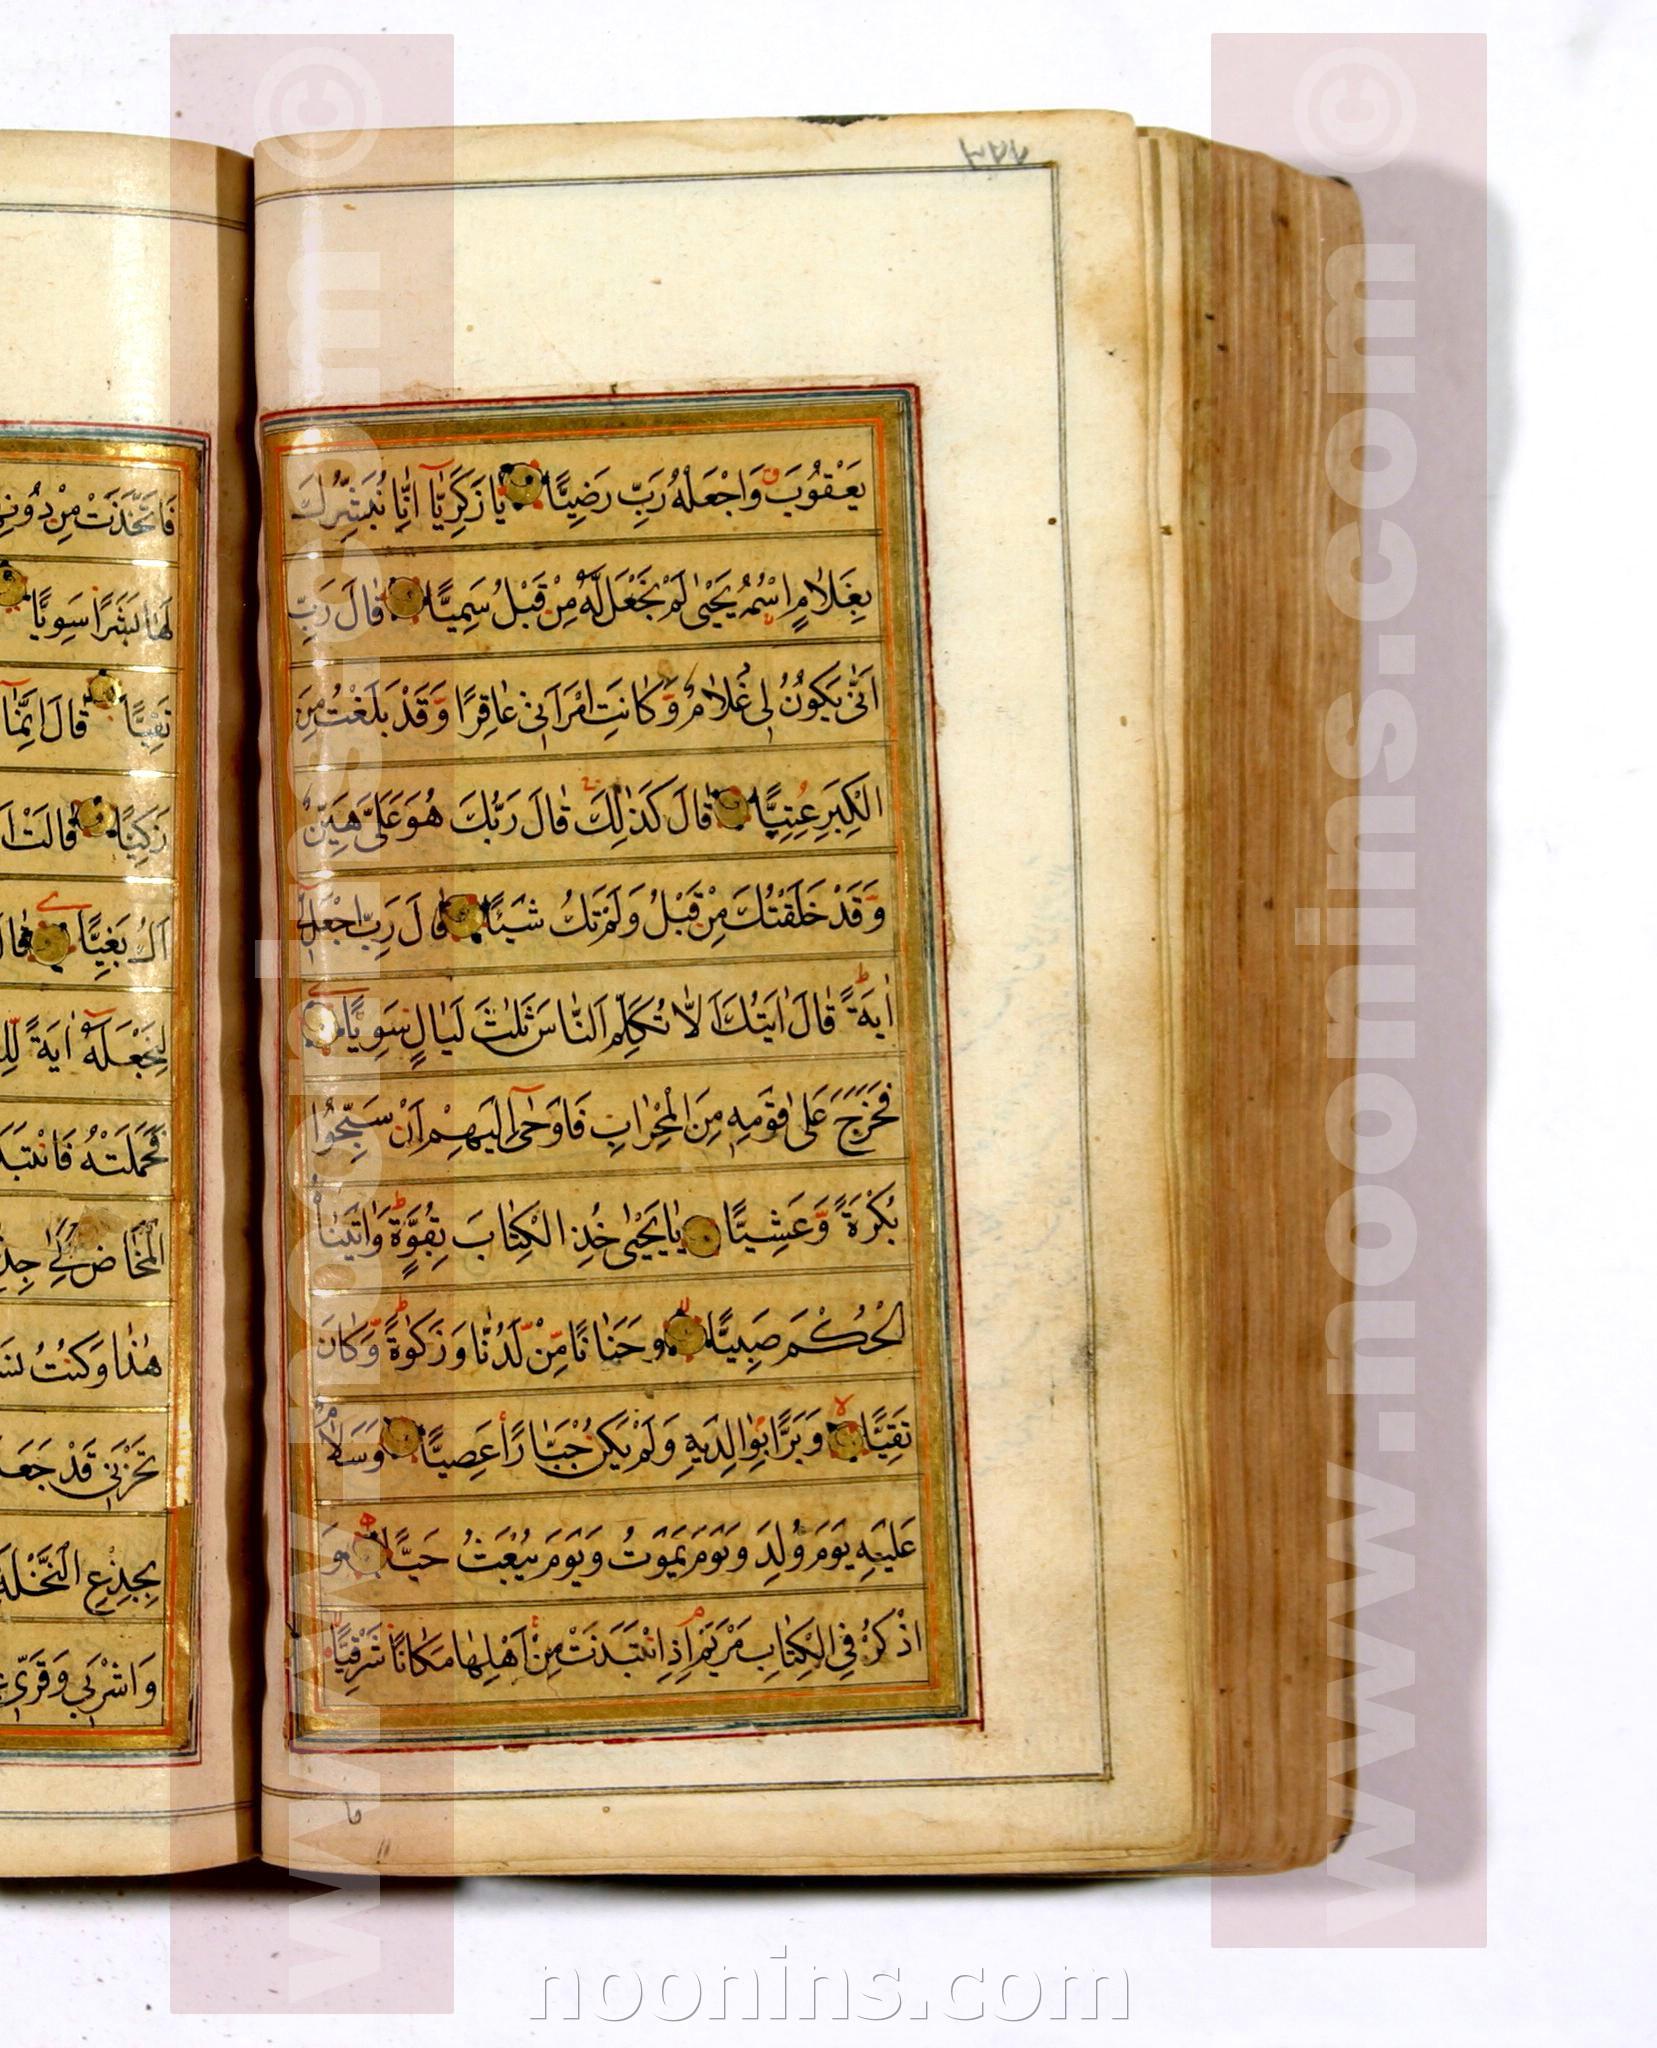 يَعْقُوبَ وَاجْعَلْهُ رَبِّ رَضِيًّا يَا زَكَرِيَّآ اِنَّا نُبَشِّرُكَ
بِغُلَامٍ اسْمُهُ يَحْيٰى لَمْ نَجْعَلْ لَهُ مِنْ قَبْلُ سَمِيًّا قَالَ رَبِّ
اَنّٰى يَكُونُ لِي غُلَامٌ وَّكَانَتِ امْرَاَتِي عَاقِرًا وَّقَدْ بَلَغْتُ مِنَ
الْكِبَرِ عِتِيًّا قَالَ كَذٰلِكَ قَالَ رَبُّكَ هُوَ عَلَيَّ هَيِّنٌ
وَّقَدْ خَلَقْتُكَ مِنْ قَبْلُ وَلَمْ تَكُ شَيْئًا قَالَ رَبِّ اجْعَلْ لِي
اٰيَةً قَالَ اٰيَتُكَ اَلَّا تُكَلِّمَ النَّاسَ ثَلٰثَ لَيَالٍ سَوِيًّا
فَخَرَجَ عَلٰى قَوْمِهِ مِنَ الْمِحْرَابِ فَاَوْحٰى اِلَيْهِمْ اَنْ سَبِّحُوا
بُكْرَةً وَّعَشِيًّا يَا يَحْيٰى خُذِ الْكِتَابَ بِقُوَّةٍ وَاٰتَيْنَاهُ
الْحُكْمَ صَبِيًّا وَحَنَانًا مِّنْ لَّدُنَّا وَزَكٰوةً وَّكَانَ
تَقِيًّا وَبَرًّا بِوَالِدَيْهِ وَلَمْ يَكُنْ جَبَّارًا عَصِيًّا وَسَلَامٌ
عَلَيْهِ يَوْمَ وُلِدَ وَيَوْمَ يَمُوتُ وَيَوْمَ يُبْعَثُ حَيًّا وَ
اذْكُرْ فِي الْكِتَابِ مَرْيَمَ اِذِ انْتَبَذَتْ مِنْ اَهْلِهَا مَكَانًا شَرْقِيًّا
فَاتَّخَذَتْ مِنْ دُونِهِ
لَهَا بَشَرًا سَوِيًّا
تَقِيًّا قَالَ اِنَّمَا
زَكِيًّا قَالَتْ
اَكُ بَغِيًّا قَالَ
لِنَجْعَلَهُ اٰيَةً
فَحَمَلَتْهُ
الْمَخَاضُ
هٰذَا وَكُنْتُ
تَحْزَنِي قَدْ جَعَلَ
بِجِذْعِ النَّخْلَةِ
وَاشْرَبِي وَقَرِّي
www.noonins.com ©
www.noonins.com ©
noonins.com